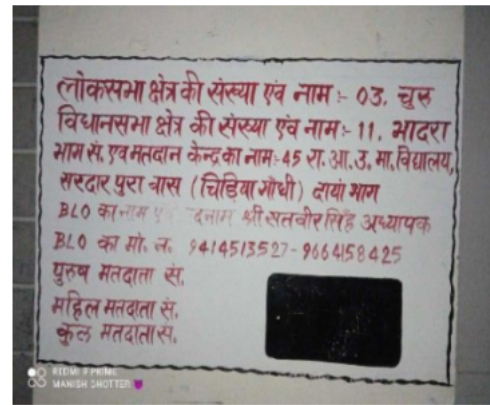 लोकसभा क्षेत्र की संख्या एंव नाम :- 03. चुरू
विधानसभा क्षेत्र की संख्या एंव नाम :- 11. भादरा
भाग सं. एंव मतदान केन्द्र का नाम :- 45 रा. आ. उ. मा. विद्यालय,
सरदार पुरा बास (चिड़िया गांधी) दायां भाग
BLO का नाम श्री सतवीर सिंह अध्यापक
BLO का मो. न. 9414513527-9664158425
पुरुष मतदाता सं.
महिल मतदाता सं.
कुल मतदाता सं.
REDMI 9 PRIME
MANISH SHOTTER